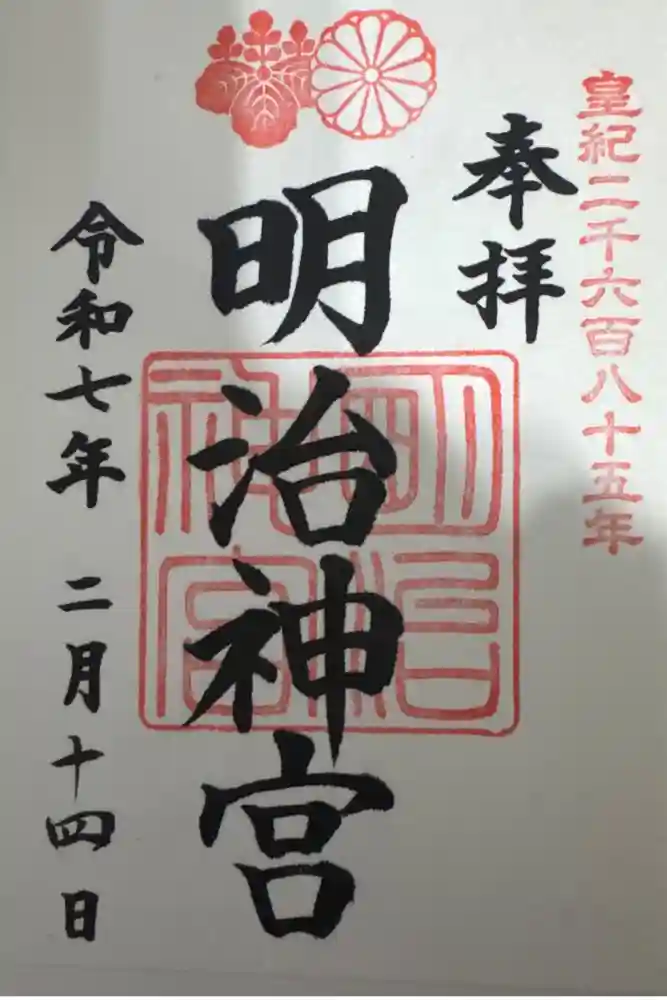 皇紀二千六百八十五年
奉拝
明治神宮
明治神宮
令和七年 二月十四日